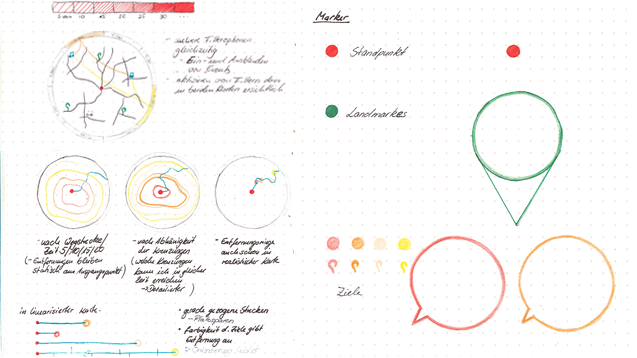 5 min 10 15 20 25 30
- mehrere Filteroptionen
gleichzeitig
- Ein- und Ausblenden
von
- aktivieren von Filtern dann
in beiden Karten ersichtlich
- nach Wegstrecke/
Zeit 5/10/15/20
(- Entfernungen bleiben
statisch am Ausgangspunkt)
- nach Abhängigkeit
der Kreuzungen
(welche Kreuzungen
kann ich in gleicher
Zeit erreichen
- Entfernungsringe
auch schon in
realistischer Karte
in linearisierter Karte
• gerade gezogene Strecken
• farbigkeit d. Ziele gibt
Entfernung an
Marker
Standpunkt
Landmarkes
Ziele